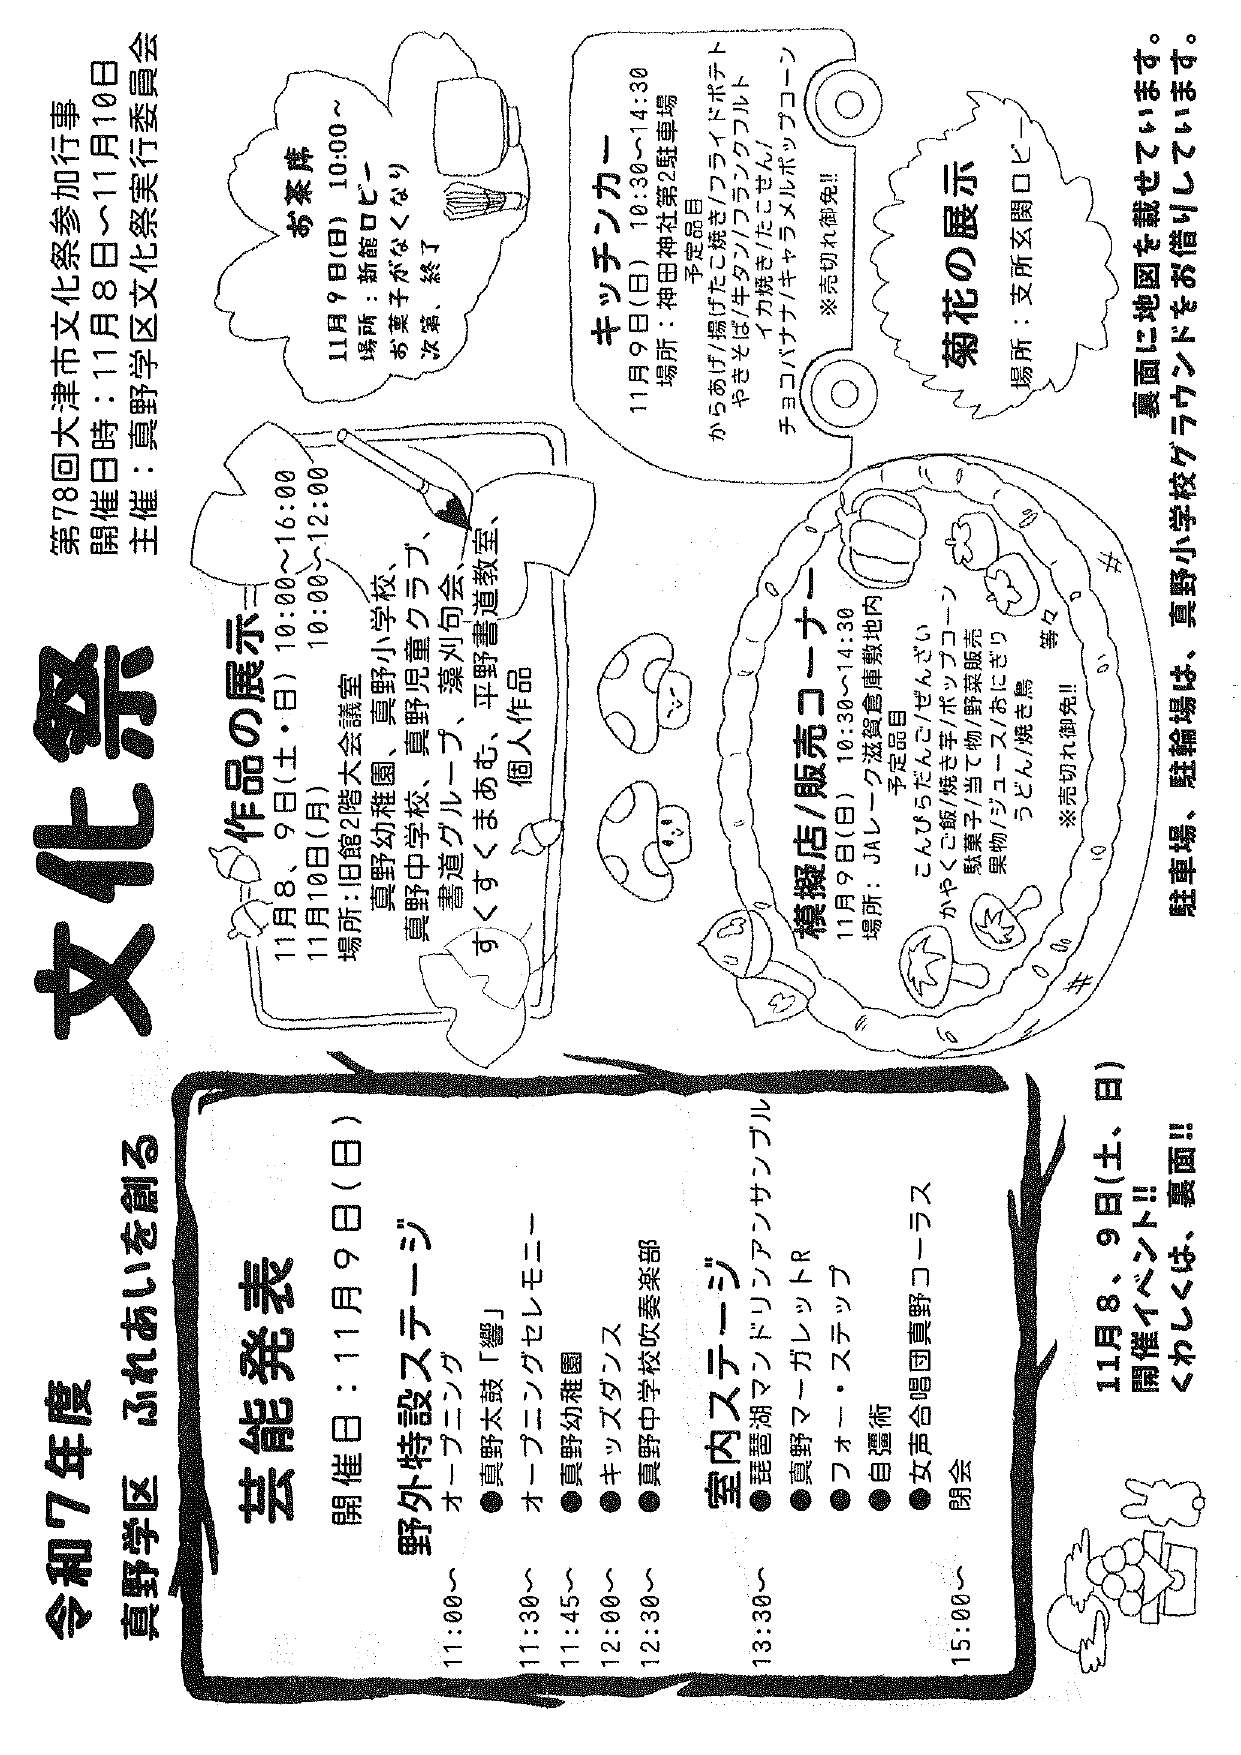 令和７年度
真野学区　ふれあいを創る
文化祭
第78回大津市文化祭参加行事
開催日時：11月８日～11月10日
主催：真野学区文化祭実行委員会
芸能発表
開催日：11月９日(日)
野外特設ステージ
11:00～　オープニング
●真野太鼓「響」
11:30～　オープニングセレモニー
11:45～　●真野幼稚園
12:00～　●キッズダンス
12:30～　●真野中学校吹奏楽部
室内ステージ
13:30～　●琵琶湖マンドリンアンサンブル
●真野マーガレットR
●フォー・ステップ
●自彊術
●女声合唱団真野コーラス
15:00～　閉会
11月８、９日(土、日)
開催イベント!!
くわしくは、裏面!!
作品の展示
11月８、９日(土・日)　10:00～16:00
11月10日(月)　10:00～12:00
場所:旧館2階大会議室
真野幼稚園、真野小学校、
真野中学校、真野児童クラブ、
書道グループ、藻刈句会、
すくすくまあむ、平野書道教室、
個人作品
お茶席
11月９日(日)　10:00～
場所：新館ロビー
お菓子がなくなり
次第、終了
キッチンカー
11月９日(日)　10:30～14:30
場所：神田神社第2駐車場
予定品目
からあげ/揚げたこ焼き/フライドポテト
やきそば/牛タン/フランクフルト
イカ焼き/たこせん/
チョコバナナ/キャラメルポップコーン
※売切れ御免!!
模擬店/販売コーナー
11月９日(日)　10:30～14:30
場所：JAレーク滋賀倉庫敷地内
予定品目
こんぴらだんご/ぜんざい
かやくご飯/焼き芋/ポップコーン
駄菓子/当て物/野菜販売
果物/ジュース/おにぎり
うどん/焼き鳥　等々
※売切れ御免!!
菊花の展示
場所：支所玄関ロビー
裏面に地図を載せています。
駐車場、駐輪場は、真野小学校グラウンドをお借りしています。